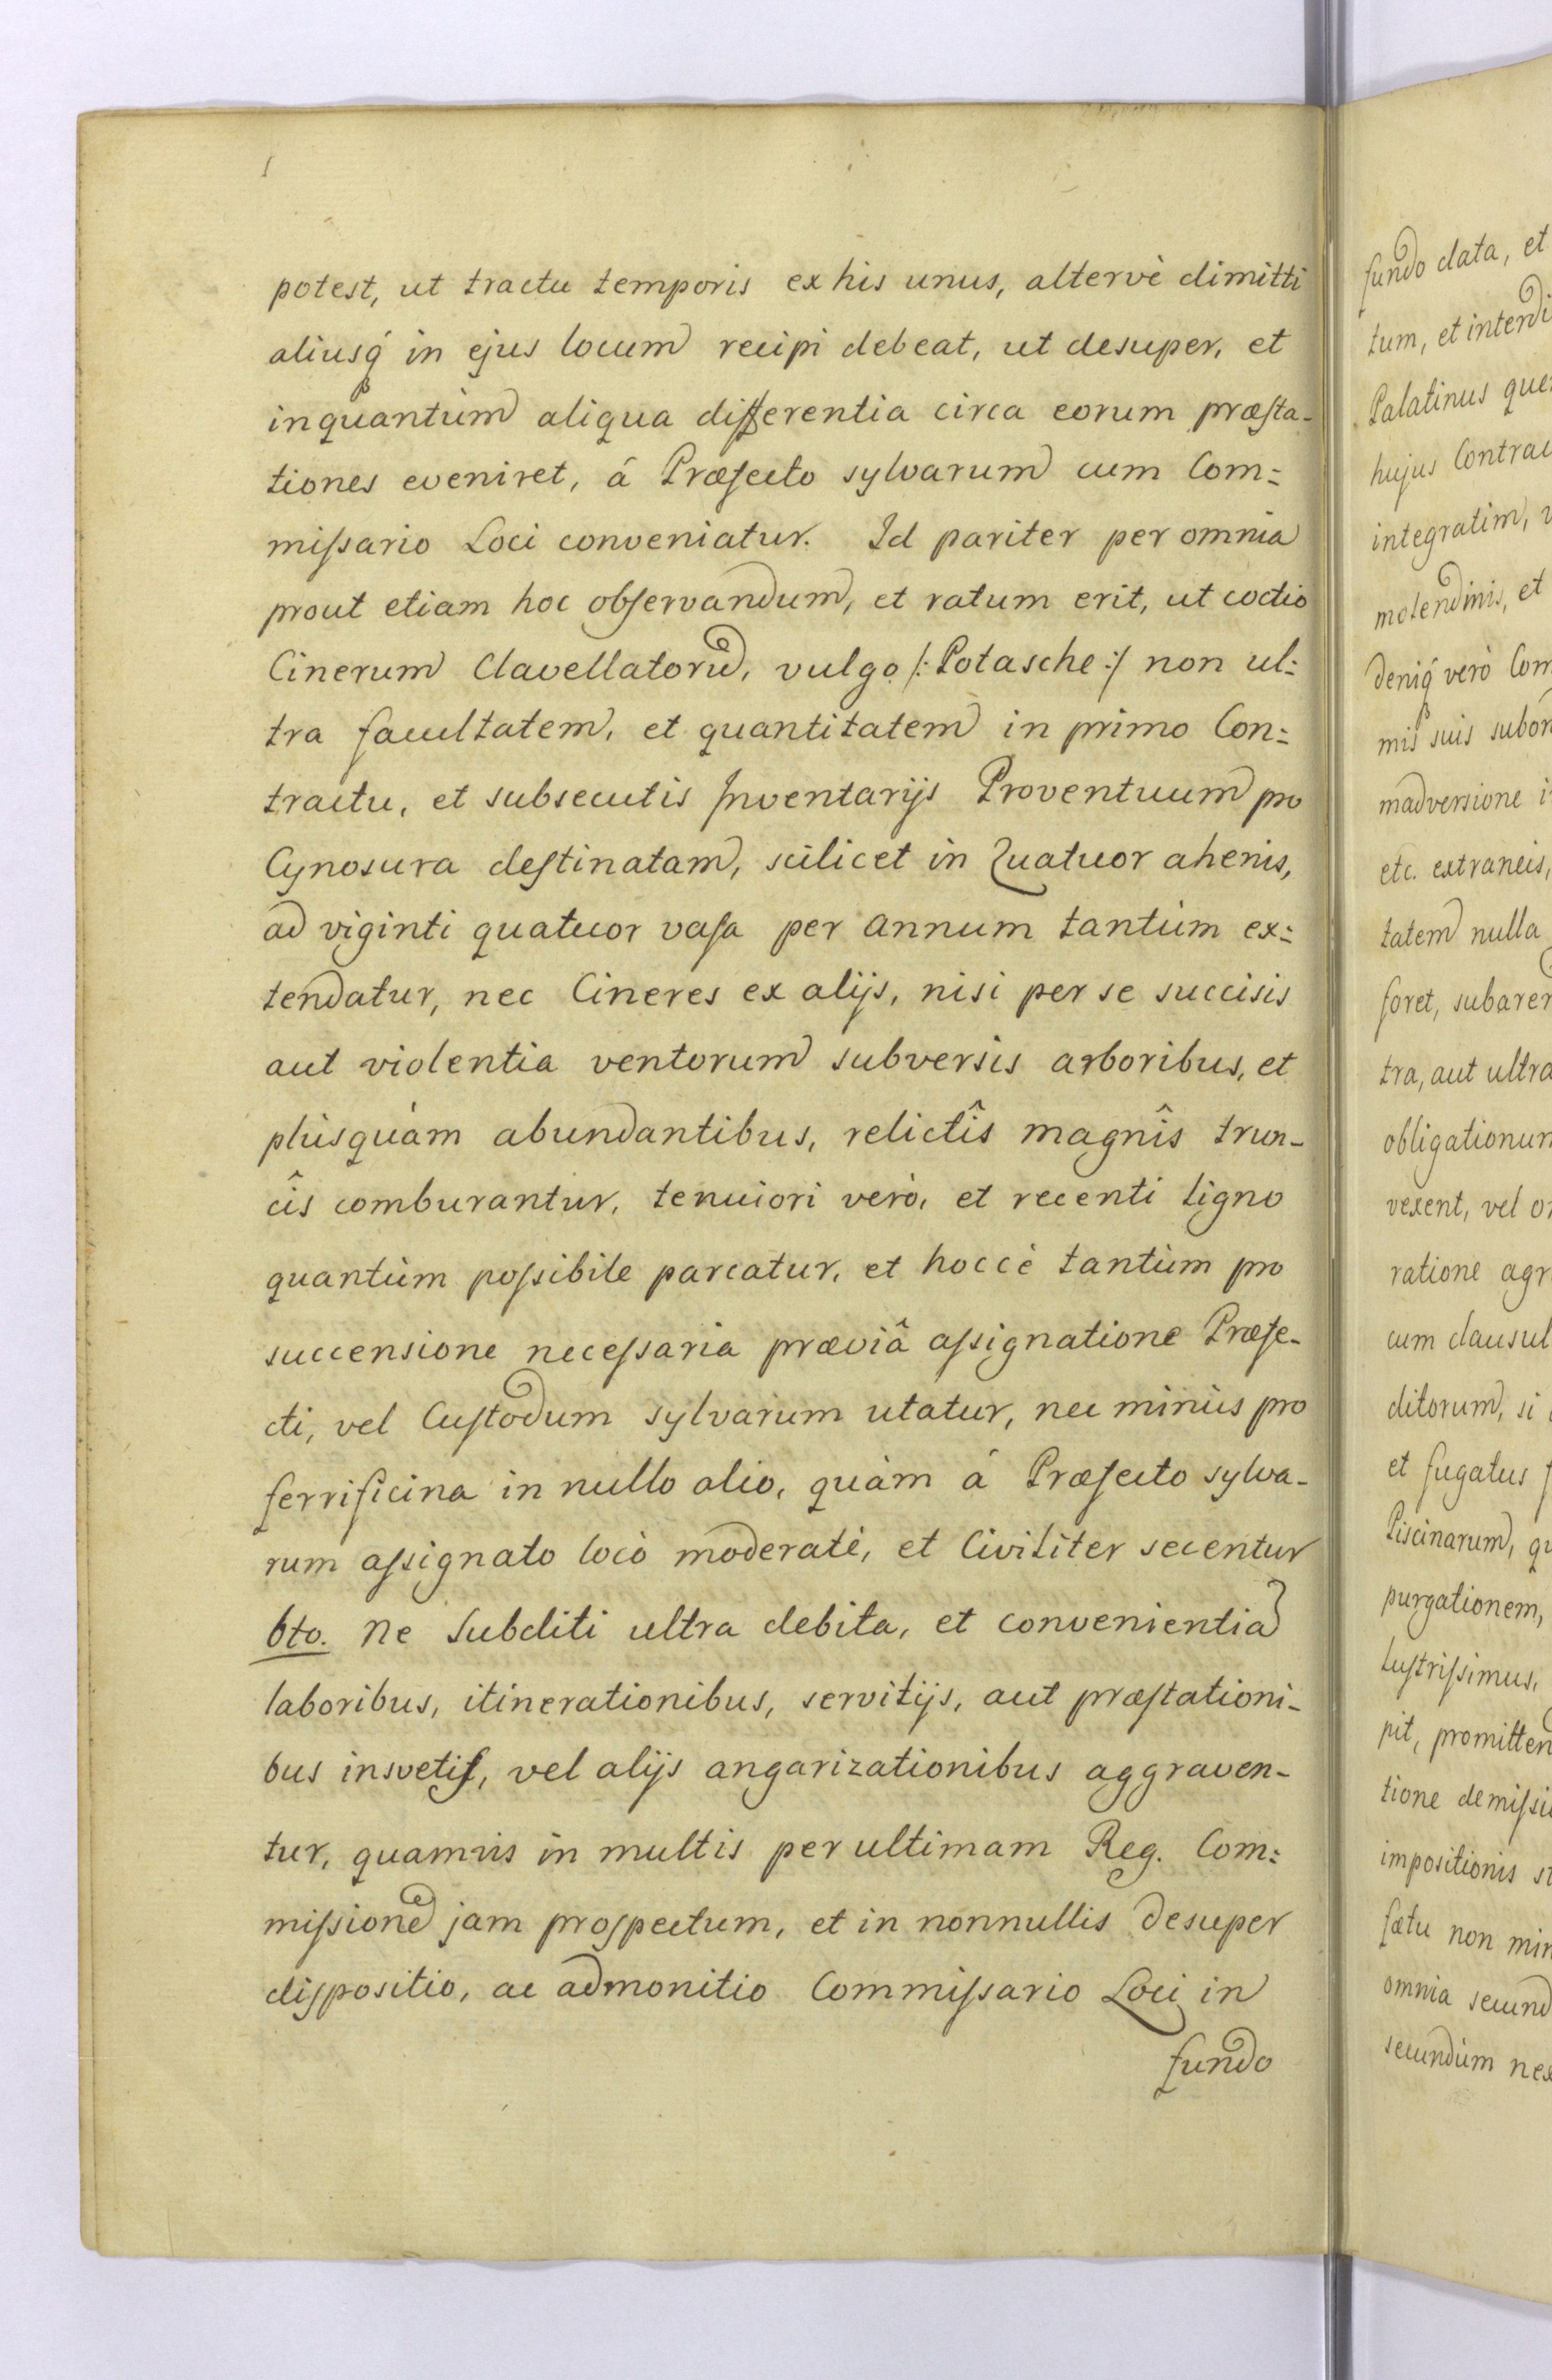 potest, ut tractu temporis ex his unus, altervè dimitti
aliusq́ in ejus locum recipi debeat, ut desuper, et
inquantùm aliqua differentia circa eorum præſta-
tiones eveniret, á Præfecto sylvarum cum Com=
miſsario Loci conveniatur. Id pariter per omnia
prout etiam hoc obſervandum, et ratum erit, ut coctio
Cinerum Clavellatorũ, vulgo /: Potasche :/ non ul=
tra facultatem, et quantitatem in primo Con=
tractu, et subsecutis Inventarijs Proventuum pro
Cynosura deſtinatam, scilicet in Quatuor ahenis,
ad viginti quatuor vaſa per annum tantùm ex=
tendatur, nec Cineres ex alijs, nisi per se succisis
aut violentia ventorum subversis arboribus, et
plùsquàm abundantibus, relictîs magnîs trun-
cîs comburantur, tenuiori verò, et recenti ligno
quantùm poſsibile parcatur, et hoccè tantùm pro
succensione neceſsaria præviâ aſsignatione Præfe-
cti, vel Cuſtodum sylvarum utatur, nec minùs pro
ferrificina in nullo alio, quàm á Præfecto sylva-
rum aſsignato locò moderatè, et Civiliter secentur
6to. Ne Subditi ultra debita, et convenientia
laboribus, itinerationibus, servitijs, aut præſtationi-
bus insvetiſ, vel alijs angarizationibus aggraven-
tur, quamvis in multis per ultimam Reg. Com=
miſsione jam proſpectum, et in nonnullis desuper
diſpositio, ac admonitio Commiſsario Loci in
fundo
fundo data, et
tum, et interdi
Palatinus que
hujus Contrac
integratim, v
molendinis, et
deniq́ verò Com
mis suis subor
madversione i
etc. extraneis,
tatem nulla
foret, subarer
tra, aut ultra
obligationum
vexent, vel or
ratione agr
cum clausul
ditorum, si
et fugatus f
Piscinarum, qu
purgationem,
luſtriſsimus,
pit, promitten
tione demiſsi
impositionis st
fœtu non min
omnia secund
secundùm nex